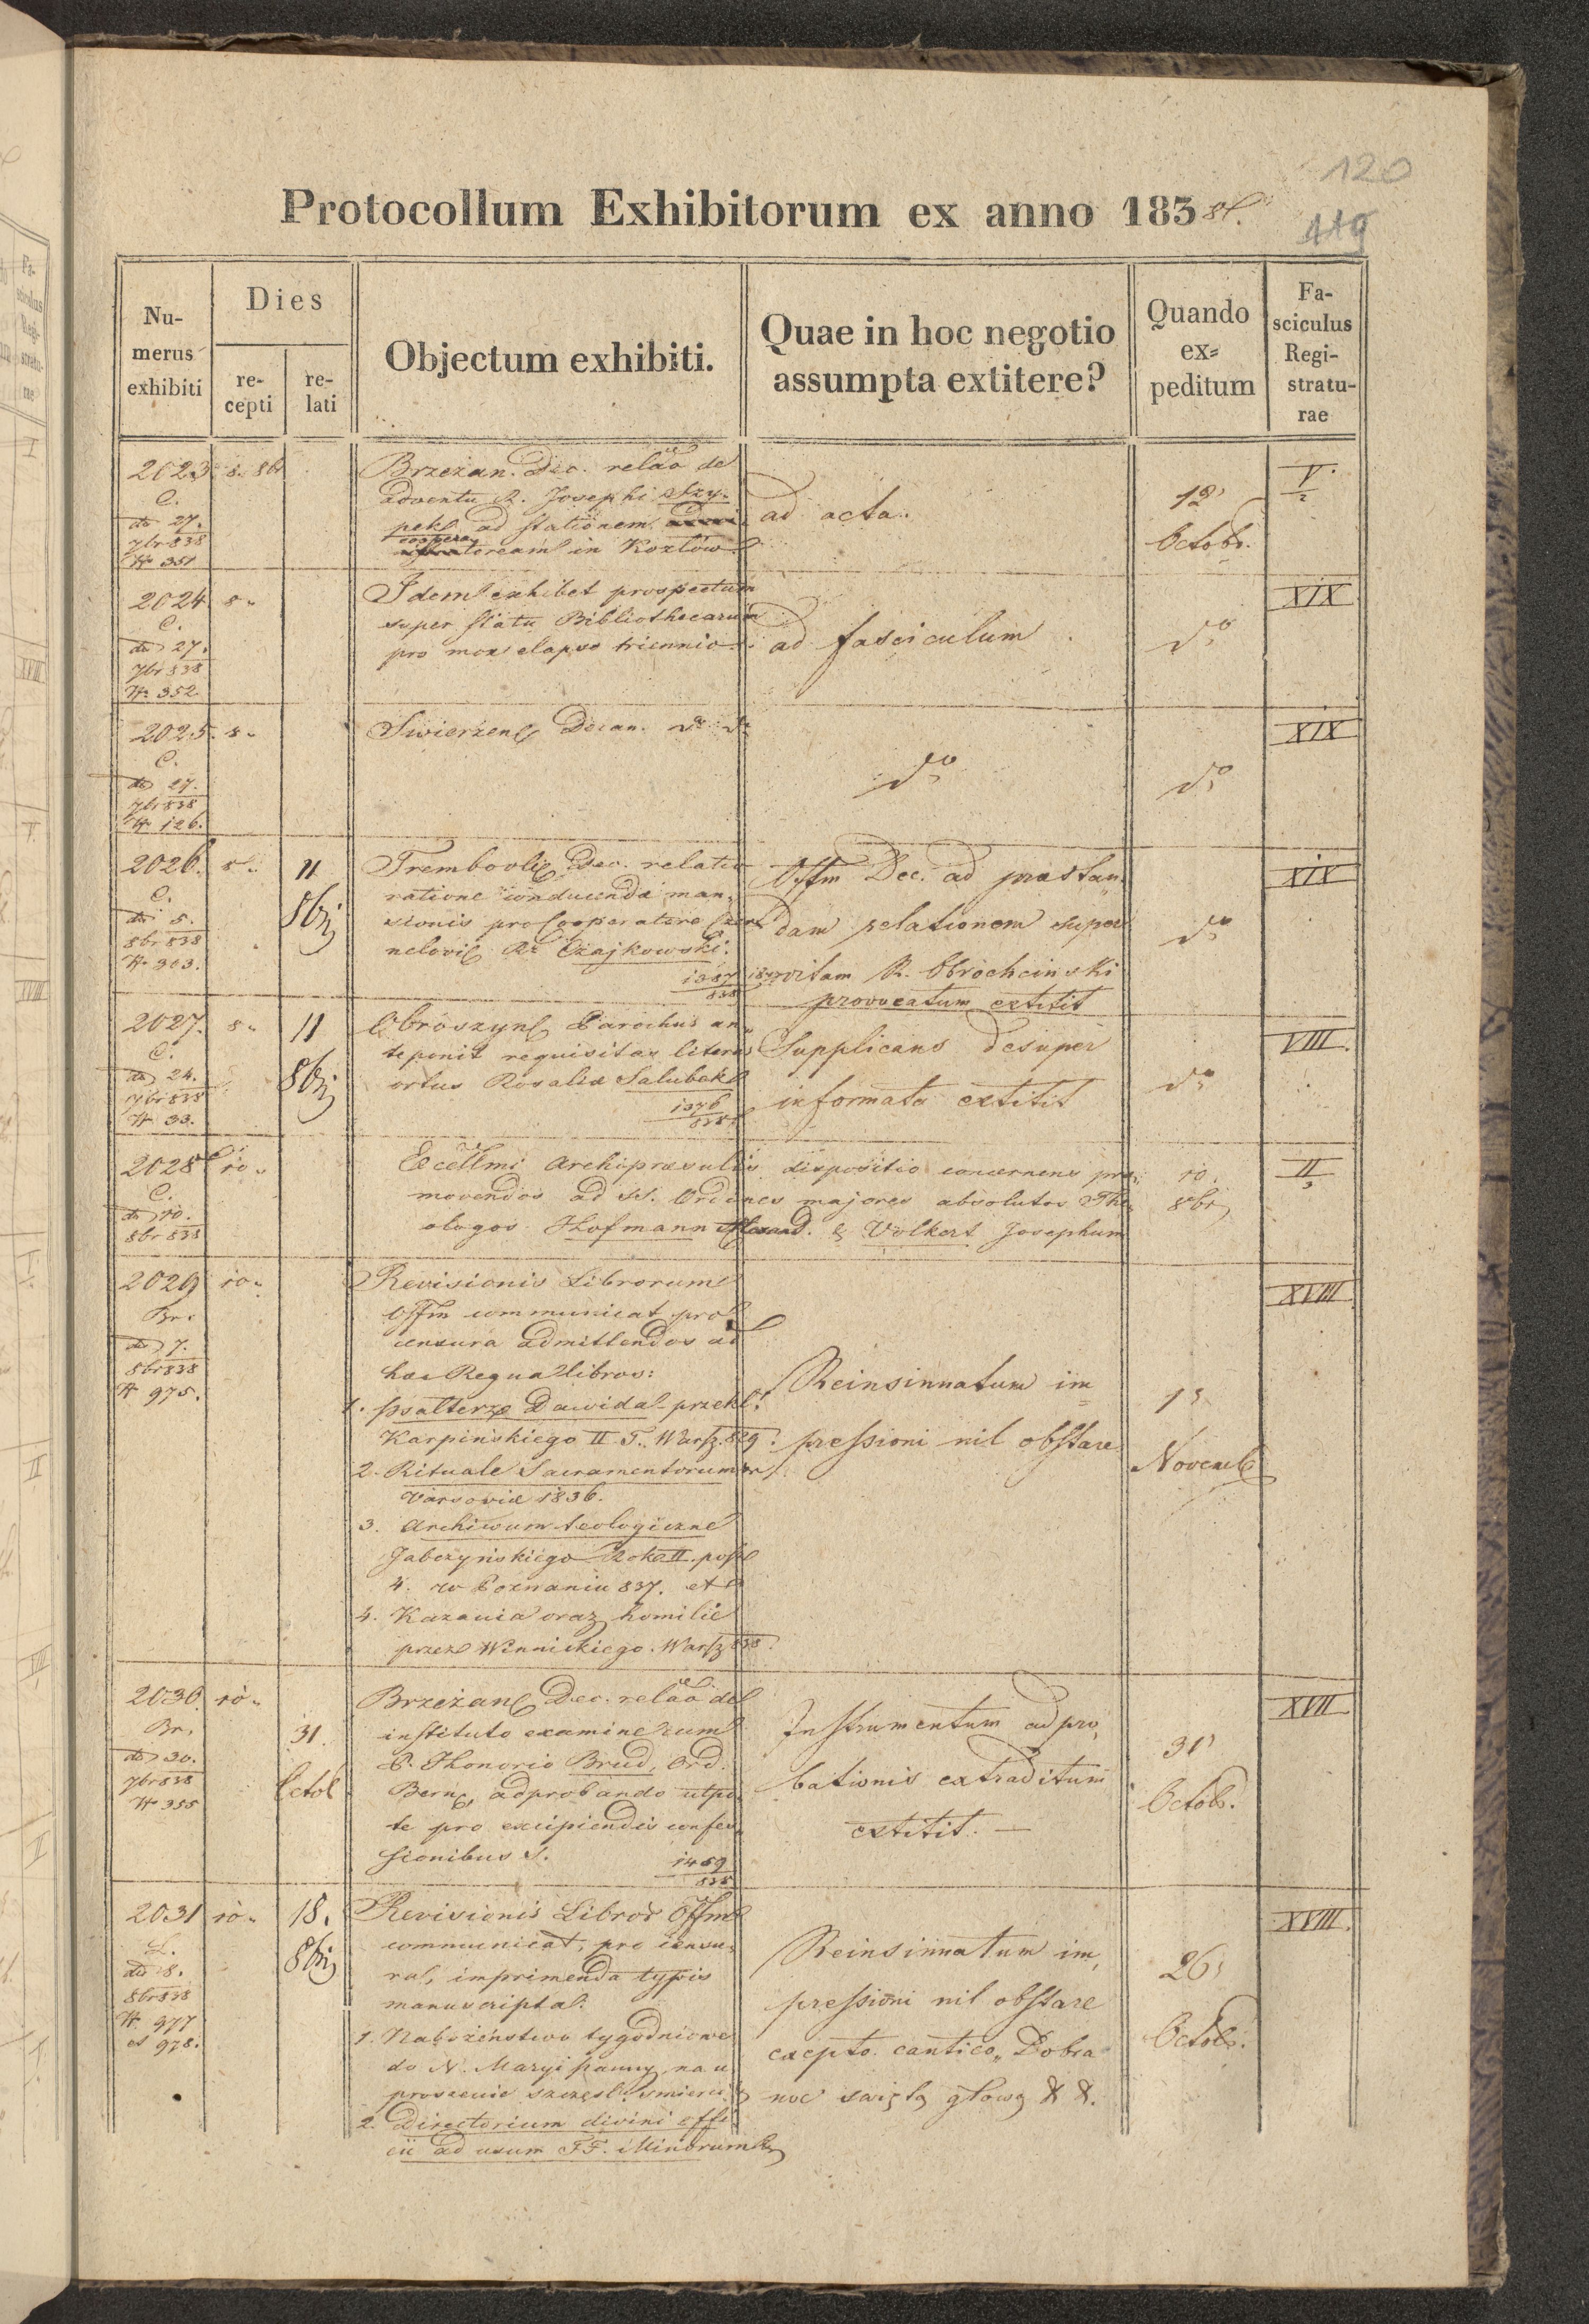 120
119
Protocollum Exhibitorum ex anno 1838.
Numerus exhibiti
Dies
recepti
relati
Objectum exhibiti.
Quae in hoc negotio assumpta extitere?
Quando expeditum
Fasciculus Registraturae
2023 8. 8br
C.
dto 27.
7br 838
N. 351
Brzeżan. Dec. relao de
adventu R. Josephi Szy-
pek ad stationem
coopera
toream in Kozłów
ad acta.
12
Octobr.
V.
2
2024 8.
C.
dto 27.
7br 838
N. 352.
Idem exhibet prospectum
super statu Bibliothecarum
pro mox elapso triennio.
ad fasciculum
do
XIX
2025. 8.
C.
dto 27.
7br 838
N. 126.
Swierzen Decan. do do
do
do
XIX
2026. 8. 11
8bri
C.
dto 5.
8br 838
N. 303.
Trembovlien Dec. relatio
ratione conducenda man-
sionis pro Cooperatore Czer-
nelovien R. Czajkowski.
1287
838
Offm Dec. ad præstan-
dam relationem super
vitam R. Obrochcinski
provocatum extitit
do
XIX
2027. 8. 11
8bri
C.
dto 24.
7br 838
N. 33.
Obroszyn Parochus an-
teponit requisitas literas
ortus Rosaliæ Salubek
1376
838
Supplicans desuper
informata extitit
do
VIII.
2028 10.
C.
dto 10.
8br 838
Excellmi Archipræsulis dispositio concernens pro-
movendos ad SS. Ordines majores absolutos The-
ologos Hofmann Alexand. & Volkert Josephum
10.
8br
II
3
2029 10.
Br.
dto 7.
8br 838
N 975.
Revisionis Librorum
Offm communicat pro
censura admittendos ad
hæc Regna libros:
1. Psałterze Dawida przekł.
Karpińskiego II T. Warsz. 829.
2. Rituale Sacramentorum
Varsoviæ 1836.
3. Archiwum teologiczne
Jabczyńskiego Rok II. posz
4. w Poznaniu 837. et
4. Kazania oraz homilie
przez Winnickiego. Warsz 838.
Reinsinuatum im-
pressioni nil obstare
13
Novemb
XVIII
2030. 10.
Br.
dto 30.
7br 838
N 355
31.
Octob
Brzeżan Dec. relao de
instituto examine cum
P. Honorio Brud, Ord.
Bern, adprobando utpo-
te pro excipiendis confes-
sionibus S.
1459
838
Instrumentum adpro-
bationis extraditum
extitit. —
31
Octob.
XVII
2031 10. 18.
8bri
L.
dto 8.
8br 838
N. 977
et 978.
Revisionis Libror Offm
communicat, pro censu-
ra, imprimenda typis
manuscripta.
1. Nabożeństwo tygodniowe
do N. Maryi panny, na u
proszenie szczęśl. śmierci
2. Directorium divini offi
cii ad usum FF. Minorum
Reinsinuatum im-
pressioni nil obstare
excepto cantico „Dobra
noc święta głowo & &.
26
Octob.
XVIII.